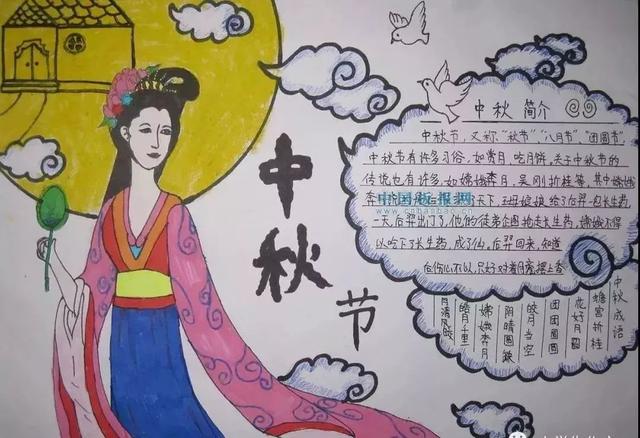 中
秋
节
中秋 简介
中秋节,又称"秋节""八月节","团圆节",
中秋节有许多习俗,如赏月,吃月饼,关于中秋节的
传说也有许多,如嫦娥奔月,吴刚折桂等,其中嫦娥
天下,王母娘娘给后羿一包长生药
一天,后羿出门了,他的徒弟企图抢走长生药,嫦娥不得
以吃下长生药,成了仙,后羿回来,知道
后伤心不以,只好对着月亮摆上香
中国板报网
中秋成语
蟾宫折桂
花好月圆
团团圆圆
皓月当空
阴晴圆缺
嫦娥奔月
皓月千里
月清风